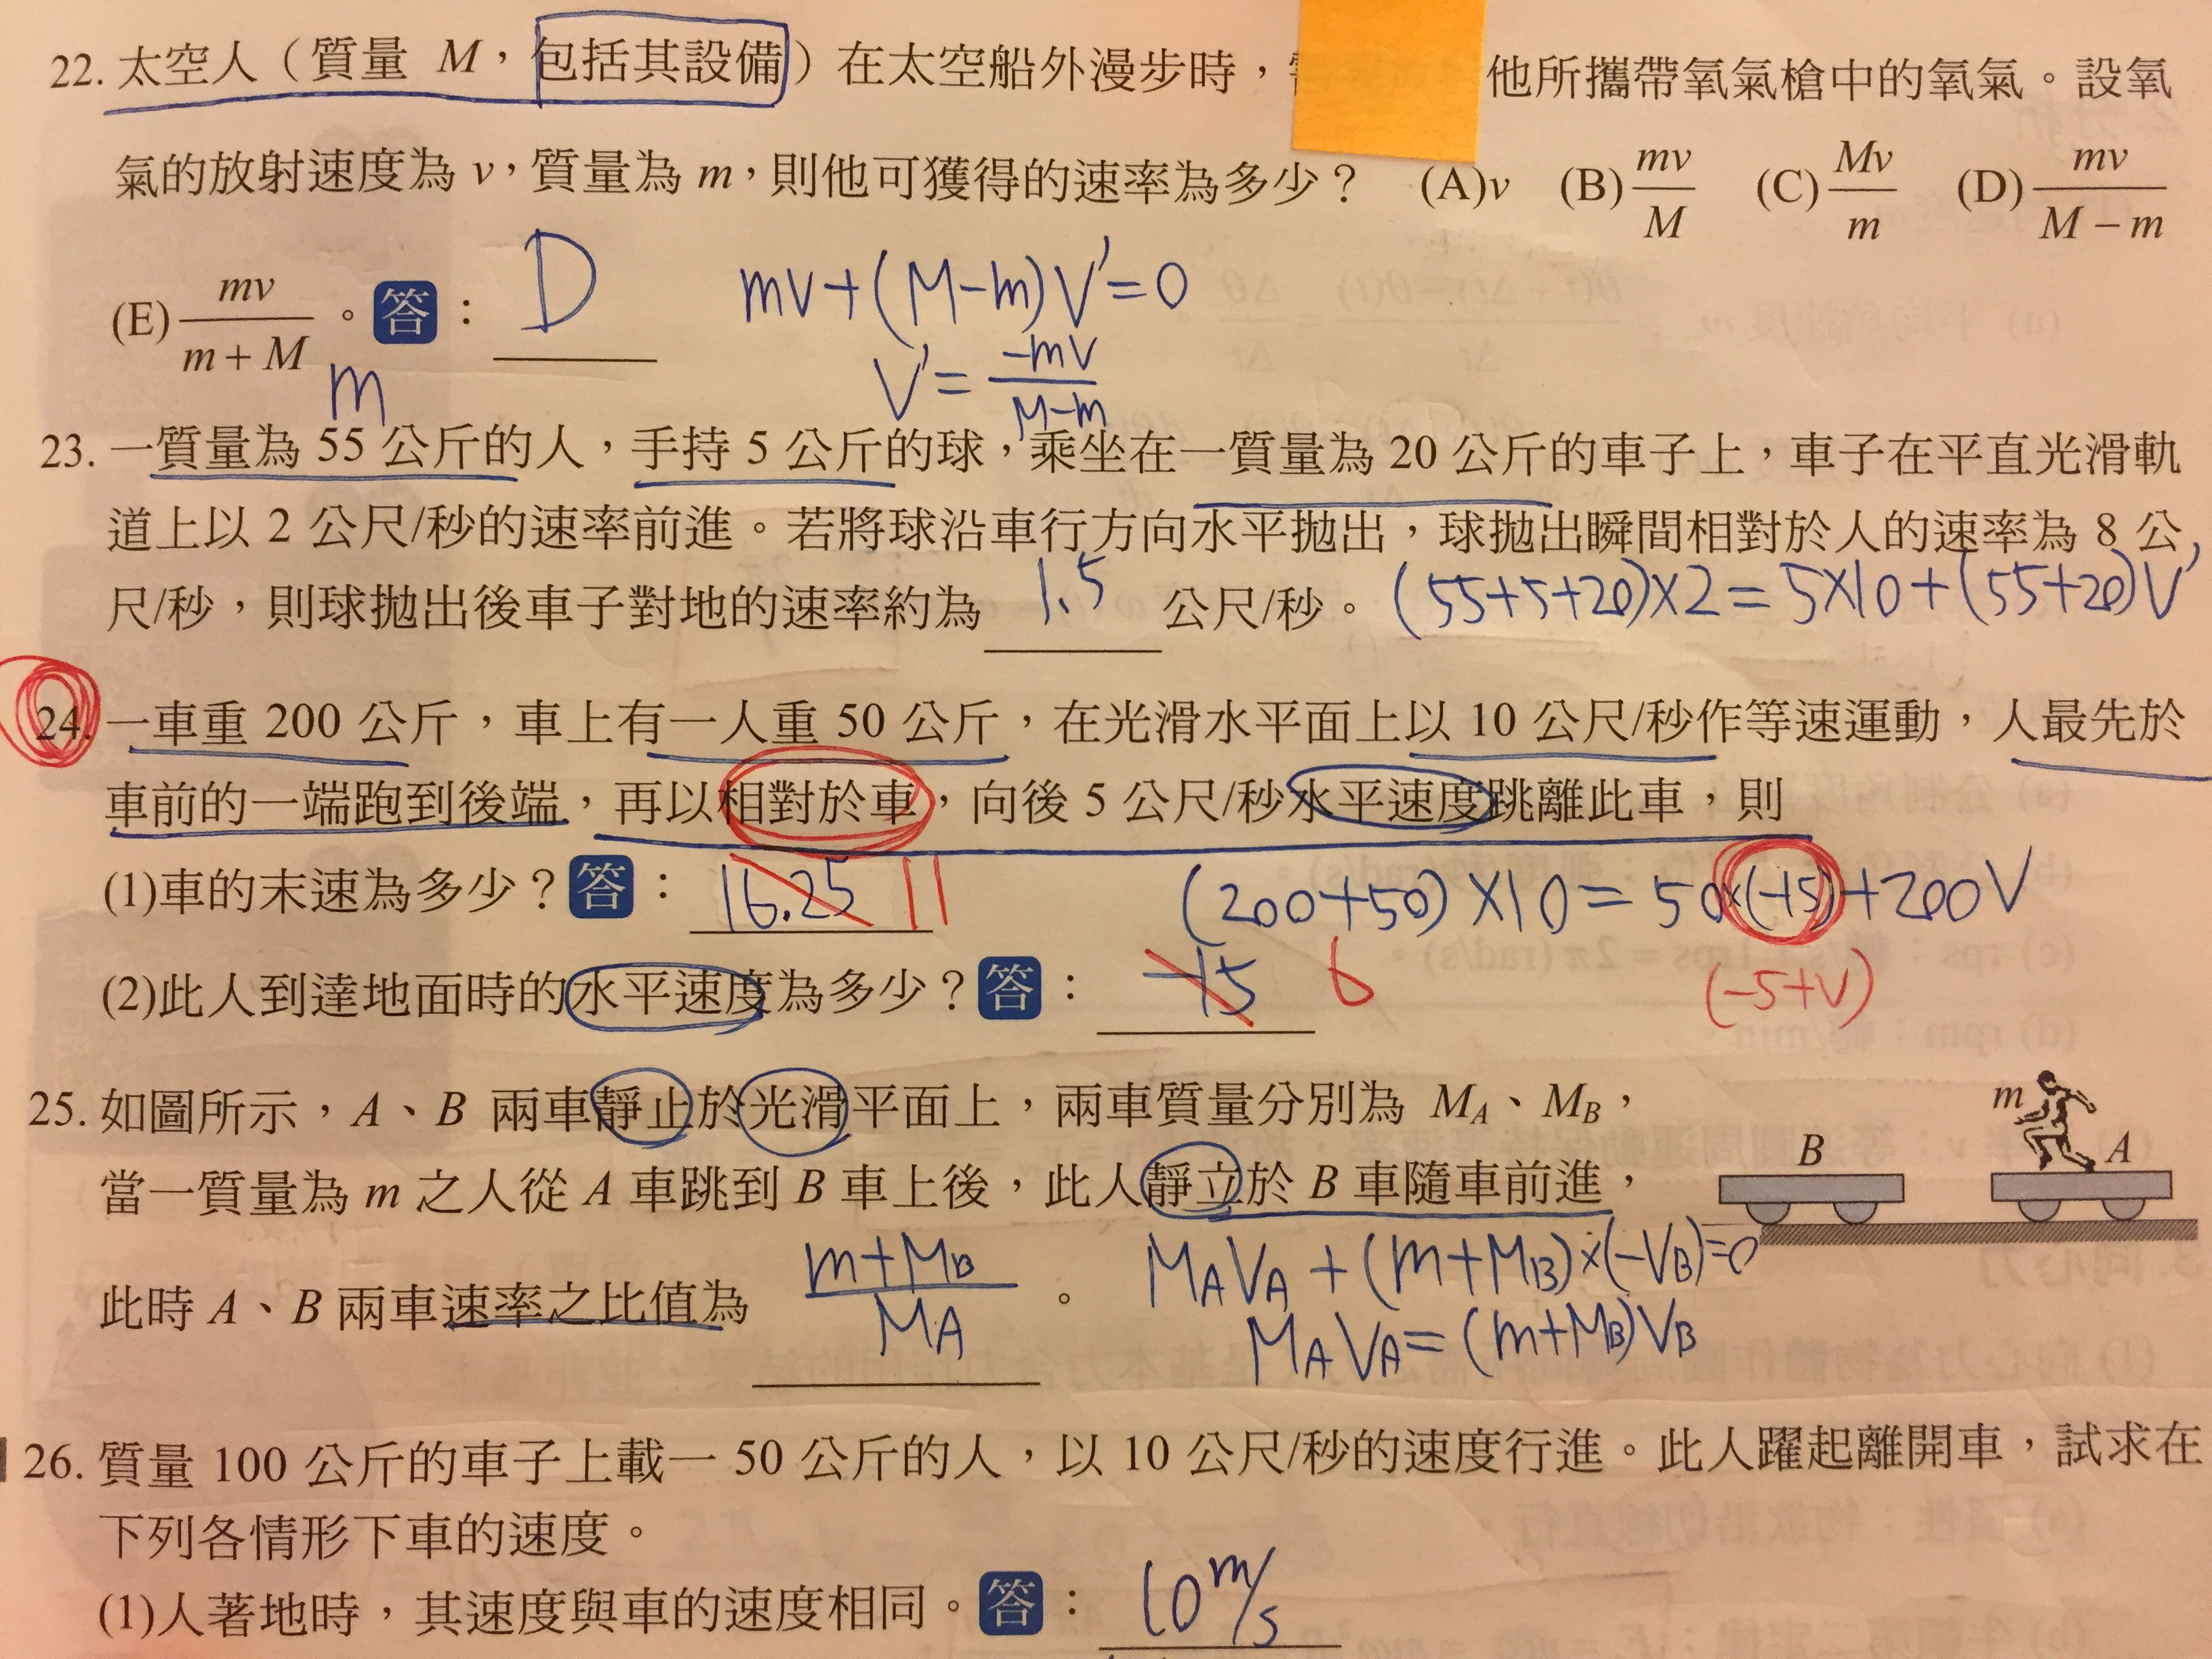 22. 太空人（質量 M，包括其設備）在太空船外漫步時，他所攜帶氧氣槍中的氧氣。設氧
氣的放射速度為 v，質量為 m，則他可獲得的速率為多少？ (A)v (B) mv/M (C) Mv/m (D) mv/(M－m)
(E) mv/(m＋M)。答： D
mv+(M-m)V'=0
V'= -mv/(M-m)
m
23. 一質量為 55 公斤的人，手持 5 公斤的球，乘坐在一質量為 20 公斤的車子上，車子在平直光滑軌
道上以 2 公尺/秒的速率前進。若將球沿車行方向水平拋出，球拋出瞬間相對於人的速率為 8 公
尺/秒，則球拋出後車子對地的速率約為 1.5 公尺/秒。 (55+5+20)×2=5×10+(55+20)V'
24. 一車重 200 公斤，車上有一人重 50 公斤，在光滑水平面上以 10 公尺/秒作等速運動，人最先於
車前的一端跑到後端，再以相對於車，向後 5 公尺/秒水平速度跳離此車，則
(1)車的末速為多少？答： 16.25 11 (200+50)×10=50×(-15)+200V
(2)此人到達地面時的水平速度為多少？答： -15 6 (-5+V)
25. 如圖所示，A、B 兩車靜止於光滑平面上，兩車質量分別為 MA、MB，
當一質量為 m 之人從 A 車跳到 B 車上後，此人靜立於 B 車隨車前進，
m
B
A
此時 A、B 兩車速率之比值為 (m+MB)/MA。
MAVA+(m+MB)×(-VB)=0
MAVA=(m+MB)VB
26. 質量 100 公斤的車子上載一 50 公斤的人，以 10 公尺/秒的速度行進。此人躍起離開車，試求在
下列各情形下車的速度。
(1)人著地時，其速度與車的速度相同。答： 10 m/s